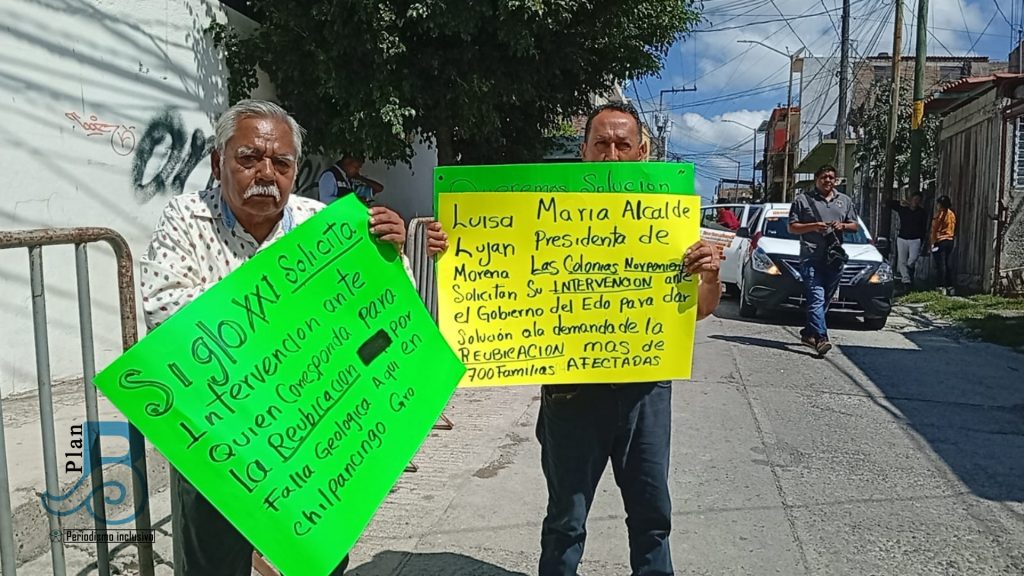 Siglo XXI Solicita
Intervencion ante
Quien Corresponda para
la Reubicación por
Falla Geologica Aqui en
chilpancingo Gro
Queremos Solución"
Luisa Maria Alcalde
Lujan Presidenta de
Morena Las Colonias Norponiente
Solicitan Su INTERVENCION ante
el Gobierno del Edo para dar
Solución a la demanda de la
REUBICACION mas de
700 Familias AFECTADAS
Plan
B
Periodismo inclusivo